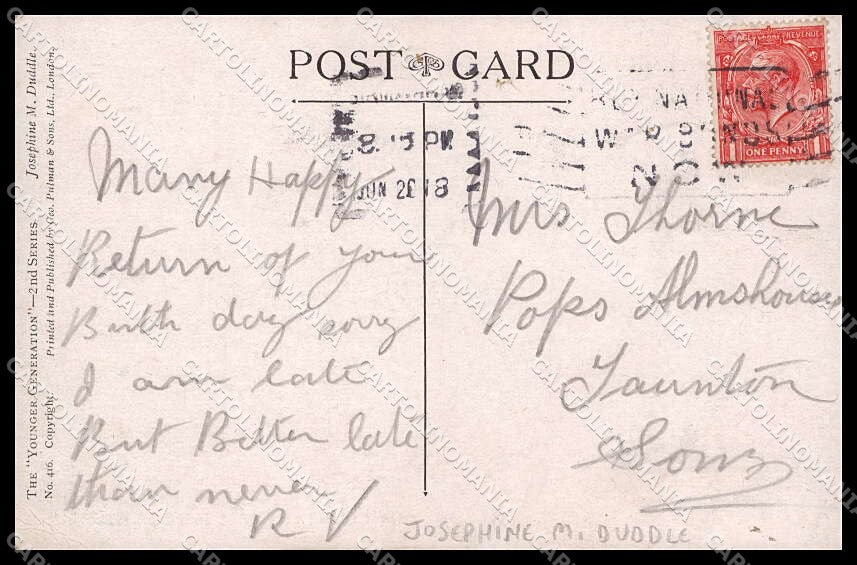 POST CARD
POSTAGE REVENUE
ONE PENNY
8.15 PM
JUN 20 18
NATIONAL
WAR BONDS
NOW
Many Happy
Return of your
Birth day sorry
I am late
But Better late
than never
R V
Mrs Thorne
Pops Almshouses
Taunton
Som
JOSEPHINE M. DUDDLE
THE "YOUNGER GENERATION"—2nd SERIES. Josephine M. Duddle.
No. 416. Copyright. Printed and Published by Geo. Pulman & Sons, Ltd., London.
CARTOLINOMANIA